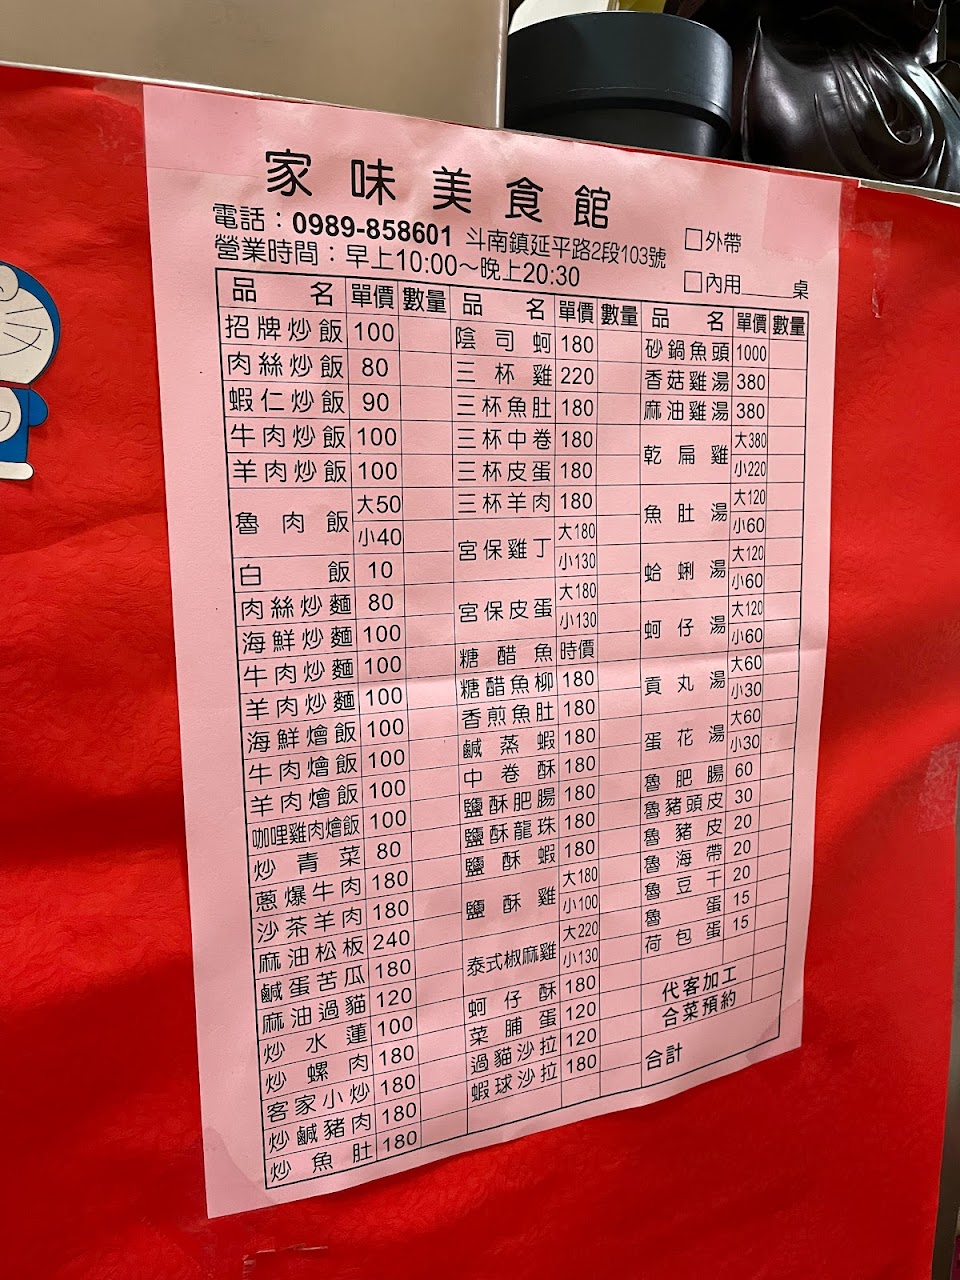 家味美食館
電話：0989-858601 斗南鎮延平路2段103號
營業時間：早上10:00～晚上20:30
□外帶
□內用____桌
品名 單價 數量
招牌炒飯 100
肉絲炒飯 80
蝦仁炒飯 90
牛肉炒飯 100
羊肉炒飯 100
魯肉飯 大50
小40
白飯 10
肉絲炒麵 80
海鮮炒麵 100
牛肉炒麵 100
羊肉炒麵 100
海鮮燴飯 100
牛肉燴飯 100
羊肉燴飯 100
咖哩雞肉燴飯 100
炒青菜 80
蔥爆牛肉 180
沙茶羊肉 180
麻油松板 240
鹹蛋苦瓜 180
麻油過貓 120
炒水蓮 100
炒螺肉 180
客家小炒 180
炒鹹豬肉 180
炒魚肚 180
品名 單價 數量
陰司蚵 180
三杯雞 220
三杯魚肚 180
三杯中卷 180
三杯皮蛋 180
三杯羊肉 180
宮保雞丁 大180
小130
宮保皮蛋 大180
小130
糖醋魚 時價
糖醋魚柳 180
香煎魚肚 180
鹹蒸蝦 180
中卷酥 180
鹽酥肥腸 180
鹽酥龍珠 180
鹽酥蝦 180
鹽酥雞 大180
小100
泰式椒麻雞 大220
小130
蚵仔酥 180
菜脯蛋 120
過貓沙拉 120
蝦球沙拉 180
品名 單價 數量
砂鍋魚頭 1000
香菇雞湯 380
麻油雞湯 380
乾扁雞 大380
小220
魚肚湯 大120
小60
蛤蜊湯 大120
小60
蚵仔湯 大120
小60
貢丸湯 大60
小30
蛋花湯 大60
小30
魯肥腸 60
魯豬頭皮 30
魯豬皮 20
魯海帶 20
魯豆干 20
魯蛋 15
荷包蛋 15
代客加工
合菜預約
合計